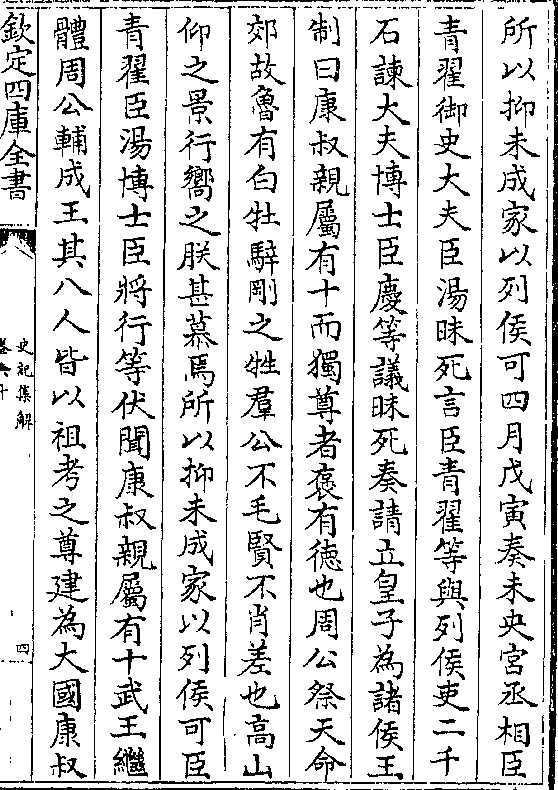 所以抑未成家以列侯可四月戊寅奏未央宫丞相臣
青翟御史大夫臣湯昧死言臣青翟等與列侯吏二千
石諫大夫博士臣慶等議昧死奏請立皇子為諸侯王
制曰康叔親屬有十而獨尊者褒有德也周公祭天命
郊故魯有白牡騂剛之牲羣公不毛賢不肖差也高山
仰之景行嚮之朕甚慕焉所以抑未成家以列侯可臣
青翟臣湯博士臣將行等伏聞康叔親屬有十武王繼
體周公輔成王其八人皆以祖考之尊建為大國康叔
欽定四庫全書
史記集解
卷六十
四